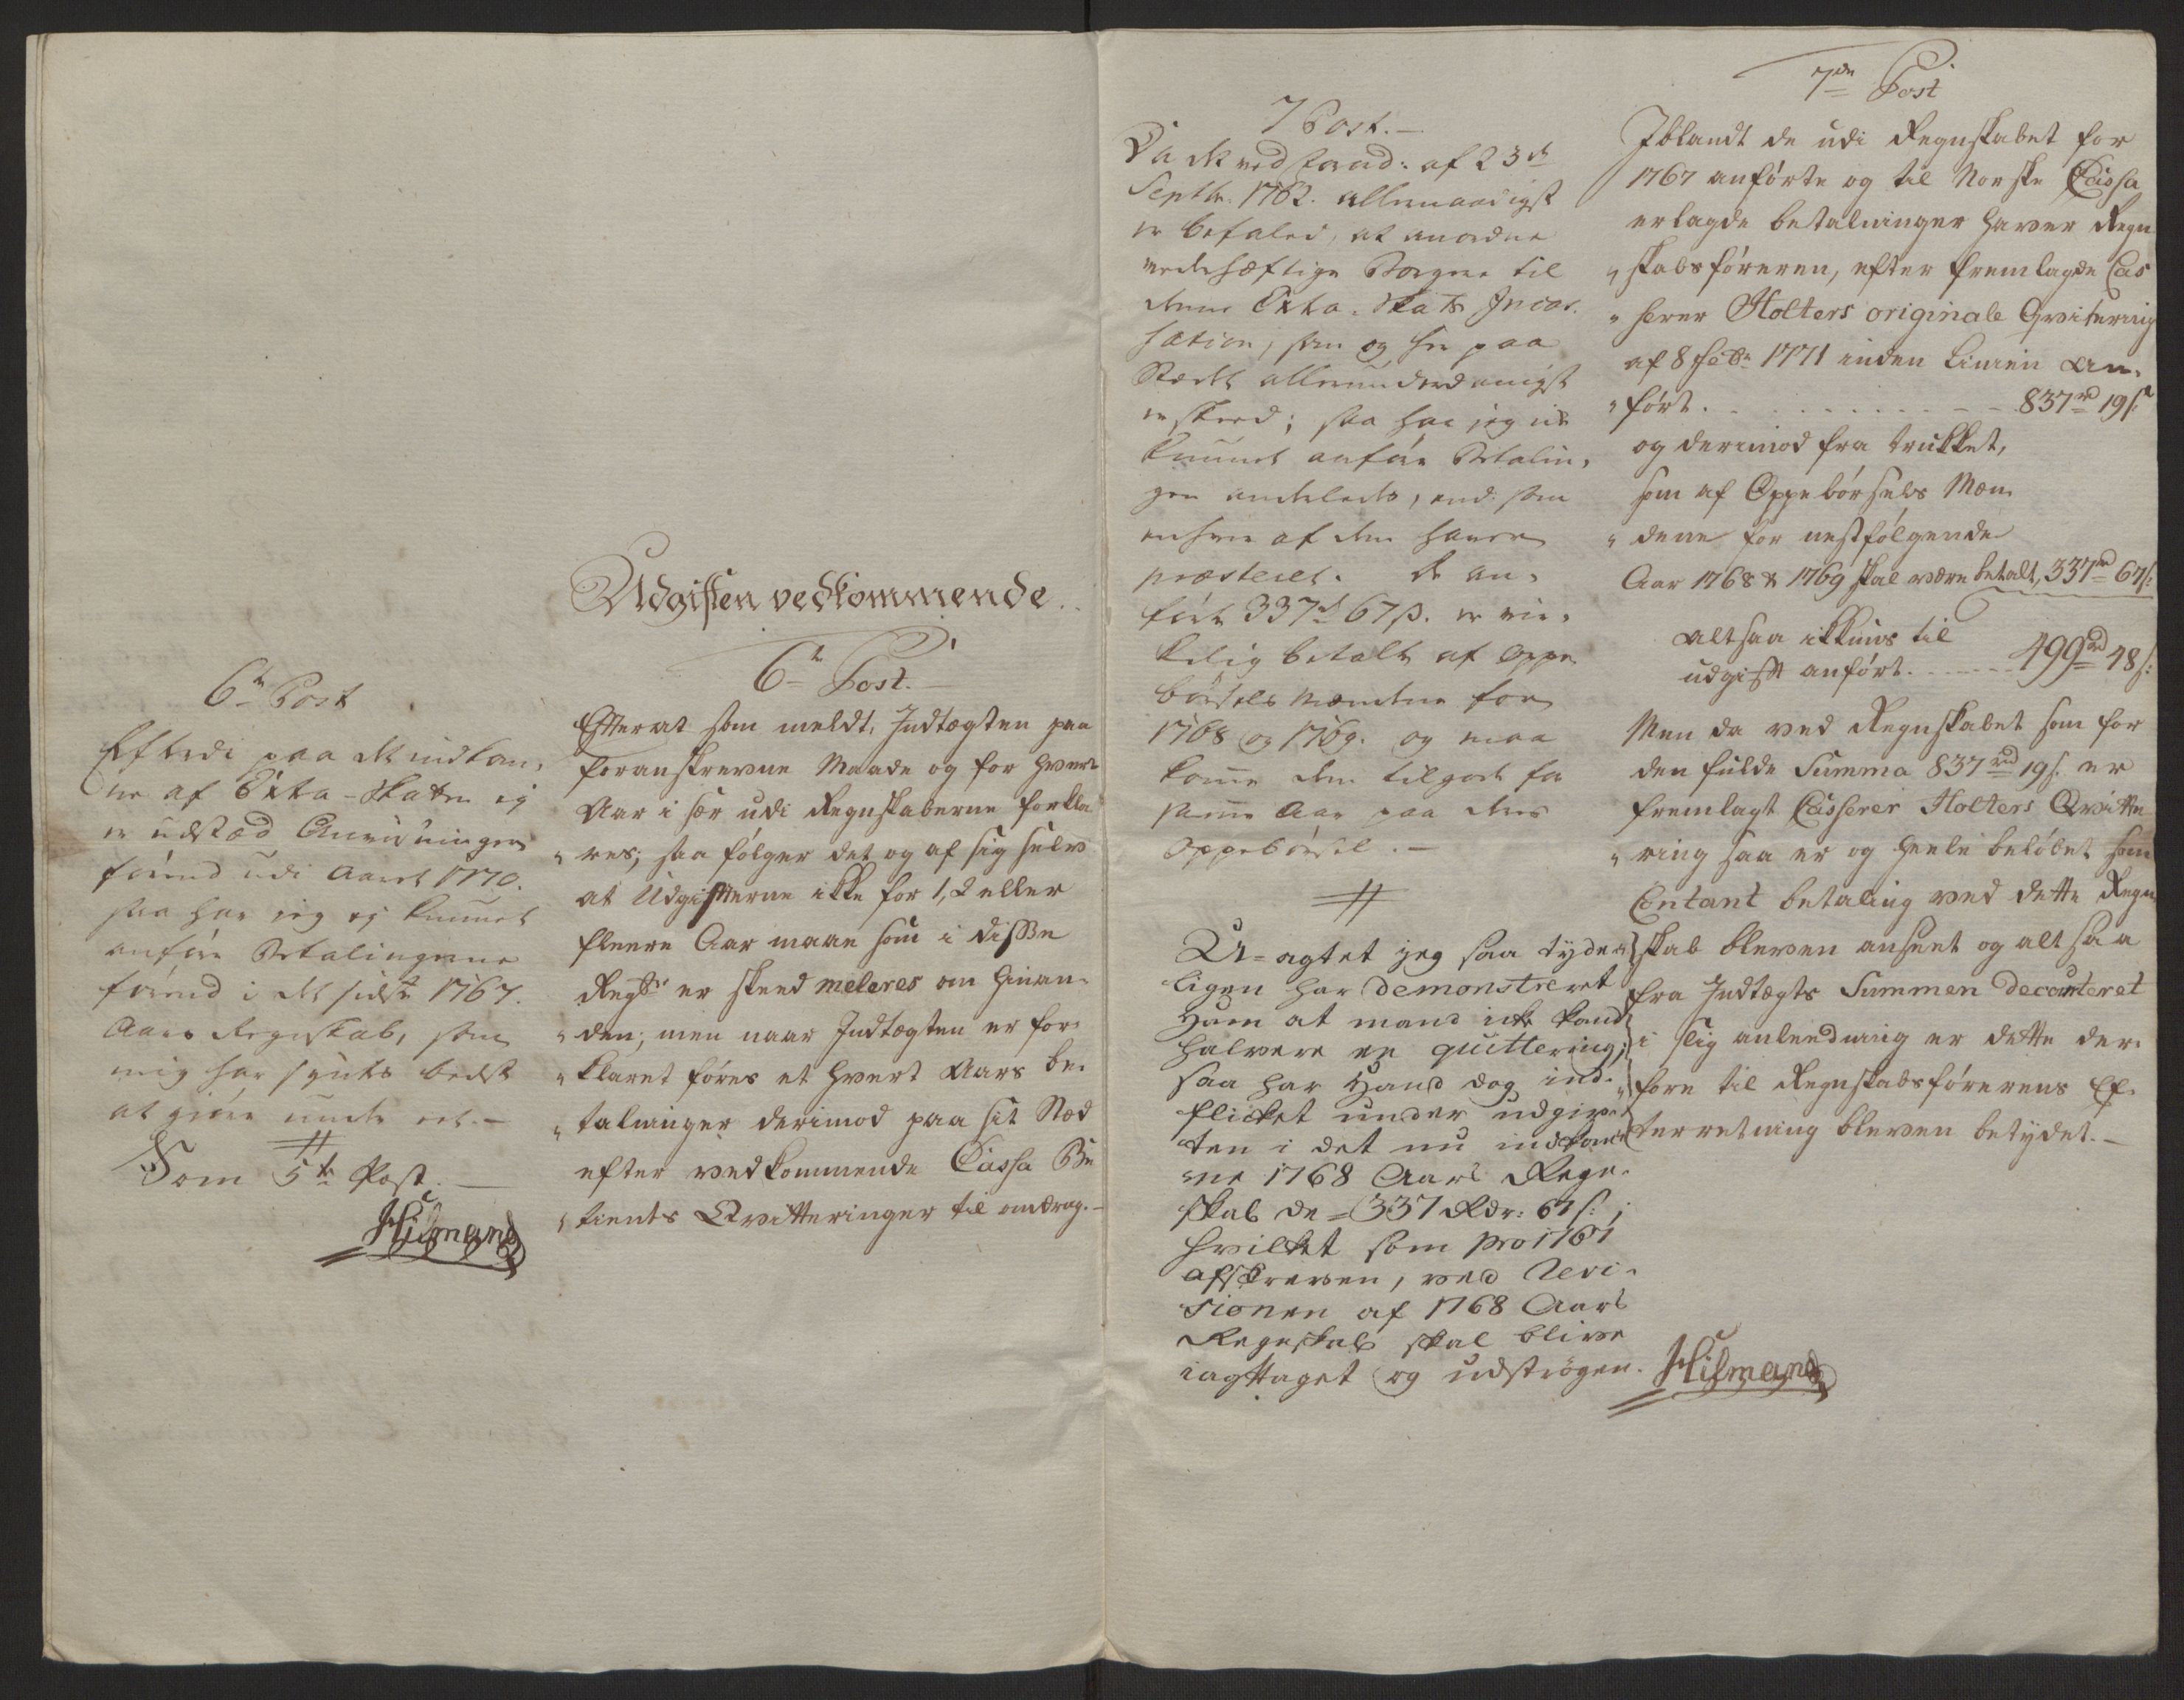 6te Post
Efterdi paa det indkom,
ne af Extra-Skatten ej
er udstæd Anvisninger
förend udi Aaret 1770.
saa har jeg ej kunnet
anföre Betalingerne
förend i det sidste 1767.
Aars Regnskab, som
mig har syntes bedst
at giöre
Som 5te Post.
Hilmand
Udgiften vedkommende
6te Post.
Efterat som meldt, Indtægten paa
foranskrevne Maade og for hvert
Aar i sær udi Regnskaberne forkla
"res; saa følger det og af sig selv
at Udgifterne ikke for 1, 2 eller
fleere Aar maae som i disse
Regsk: er skeed meleres om hinan-
"den; men naar Indtægten er for-
"klaret føres et hvert Aars be-
"talninger derimod paa sit Stæd
efter vedkommende Cassa Be
"tients Qvitteringer til omdrag.-
7 Post.-
Da det ved Forord: af 23de
Septbr. 1762. allernaadigst
er befalet, at anordne
vederhæftige Borgere til
denne Extra-Skatts Incas-
sation, som og her paa
Stædet allerunderdanigst
er skeed; saa har jeg ik
kunnet anföre Betalin-
gen anderleds, end som
enhver af dem haver
præsteret. De an-
förte 337rd 67ß. er vir-
kelig betalt af Oppe
börsels Mændene for
1768 og 1769. og maa
komme dem tilgode for
samme Aar paa deres
Oppebörsel.-
U-agtet jeg saa tyde-
ligen har demonstreret
Ham at mand icke kand
halvere en quittering;
saa har Hand dog ind-
flicket under udgivf-
ten i det nu indkom-
ne 1768 Aars Regn-
skab de = 337 Rdr: 67 s:;
hvilket som pro 1767
afskreven, ved Revi-
sionen af 1768 Aars
Regnskab skal blive
iagttaget og udströgen. Hilmand
7de Post
Iblandt de udi Regnskabet for
1767 anførte og til Norske Cassa
erlagde betalninger haver Regn
"skabsføreren, efter fremlagde Cas
"serer Holters originale Qvitering
af 8 Febr 1771 inden Linien an-
"ført . . . . . . . 837rd 19s:
og derimod fra trukket,
som af Oppebørsels Mæn
"dene for nestfølgende
Aar 1768 & 1769 skal være betalt, 337rd 67s:
altsaa ikkuns til
udgift anført. - - - - 499rd 48s:
Men da ved Regnskabet som for
den fulde Summa 837rd 19s. er
fremlagt Casserer Holters Qvitte
"ring saa er og heele beløbet som
Contant betaling ved dette Regn
skab bleven anseet og altsaa
fra Indtægts Summen decouteret
i slig anleedning er dette der-
"fore til Regnskabsførerens Ef-
terretning bleven betydet.-